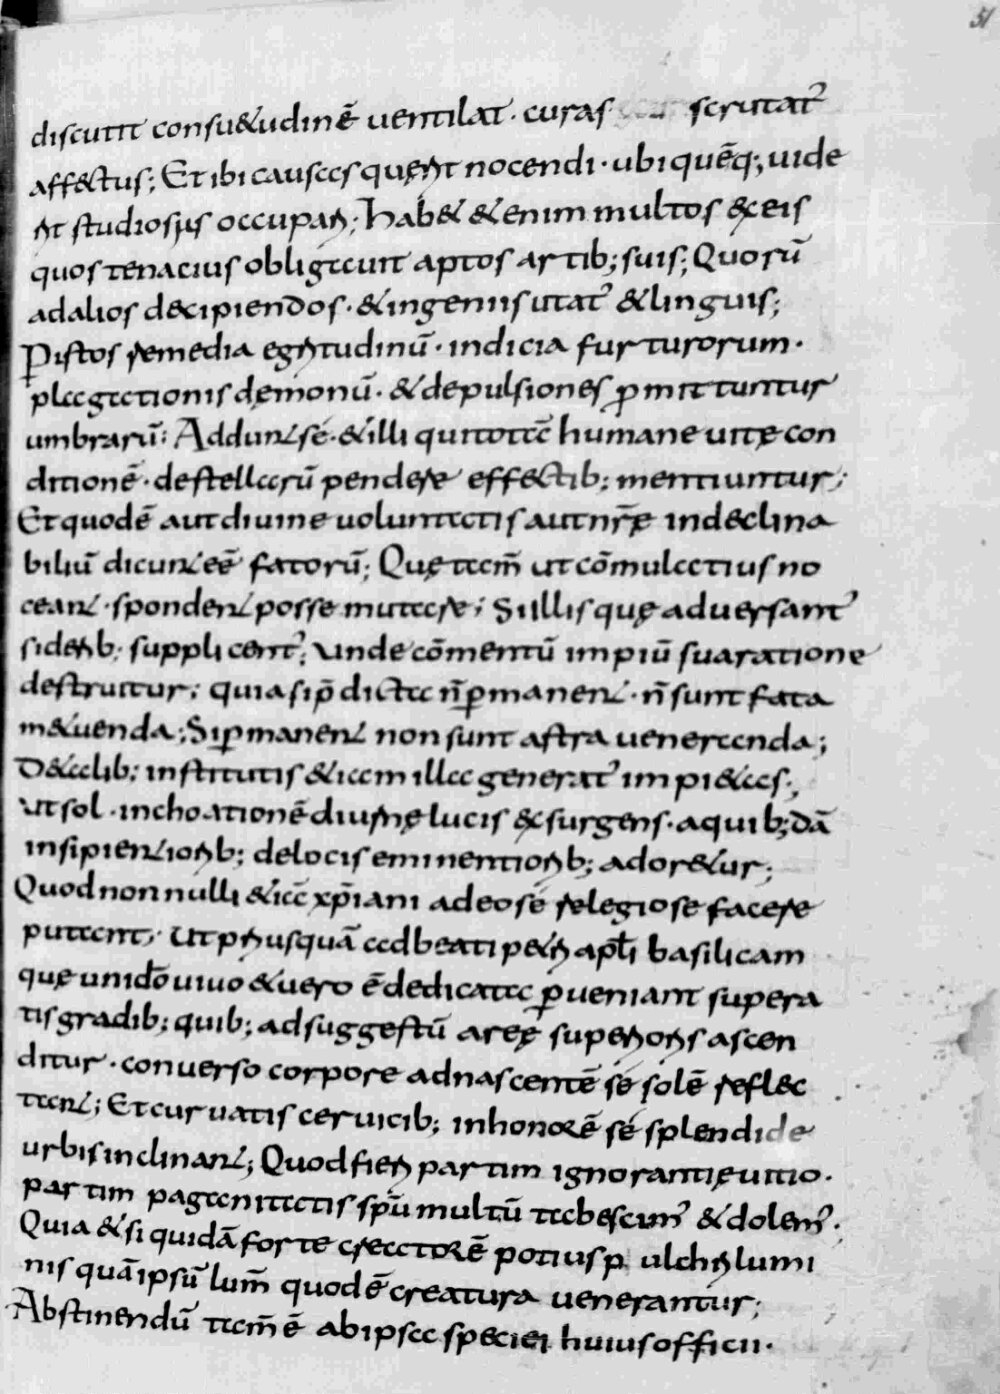 51
discutit consu&udinē uentilat · curas scrutat̉
aff&tus; Et ibi causas quęrit nocendi · ubi quēq; uide
rit studiosius occupari; Hab& &enim multos & eis
quos tenacius obligauit aptos artib; suis; Quorū
ad alios decipiendos · & ingeniis utat̉ & linguis;
Per istos remedia egritudinū · indicia furturorum ·
plagationis dęmonū · & depulsiones ꝓmittuntur
umbrarū; Addunt se · & illi qui totā humane uitę con
ditionē · de stellarū pendere effectib; mentiuntur;
Et quod ē aut diuine uoluntatis aut nr̄ę indeclina
biliū dicunt eē fatorū; Quę tam̄ ut cōmulatius no
ceant · spondent posse mutare; Si illis quę aduersant̉
siderib; supplicent̉; Unde cōmentū impiū sua ratione
destruitur; quia si p̄dicta n̄ ꝑmanent · n̄ sunt fata
m&uenda; Si ꝑmanent non sunt astra ueneranda;
De talib; institutis &iam illa generat̉ impi&as;
Ut sol · inchoationē diurnę lucis & surgens · a quib; dā
insipientiorib; de locis eminentiorib; ador&ur;
Quod nonnulli &iā xp̄iani adeo se relegiose facere
putant; Ut priusquā ad beati petri apl̄i basilicam
quę uni dō uiuo & uero ē dedicata ꝑueniant supera
tis gradib; quib; ad suggestū aręę superioris ascen
ditur · conuerso corpore ad nascentē se solē reflec
tant; Et curuatis ceruicib; in honorē se splendide
urbis inclinant; Quod fieri partim ignorantię uitio ·
partim paganitatis spū multū tabescim̉ & dolem̉;
Quia & si quidā forte creatorē potius pulchri lumi
nis quā ipsū lum̄ quod ē creatura uenerantur;
Abstinendū tam̄ ē ab ipsa speciei huius officii ·